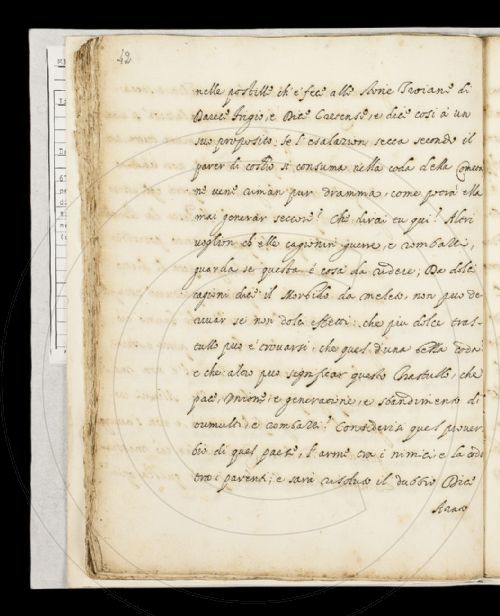 42
nelle postille ch'e fece alle storie Troiane di
Darete Frigio, e Dite Cretense, e dice così à un
suo proposito. Se l'esalazion secca secondo il
parer di costui si consuma nella coda della Comeon
ne vene riman pur dramma, come potrà ella
mai generar seccore? Che dirai tu qui? Altri
voglion ch'elle cagionin guerre, e combatti,
guarda se questa è cosa da ridere; Da dolci
cagioni dice il Morbido da Meleto, non può de
rivar se non dolci effetti: che più dolce tras-
tullo può trovarsi, che quel d'una bella coda
e che altro può significar questo trastullo, che
pace, unione, e generazione, e sbandimento di
tumulti, e combatti? Considera quel prover
bio di quel paese, l'arme tra i nimici e la coda
tra i parenti, e sarà risoluto il dubbio. Dice